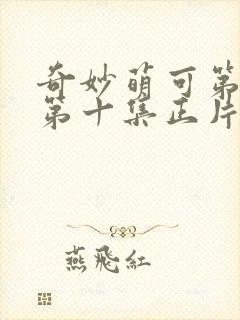 奇妙萌可第
第十集正片
燕飛紅